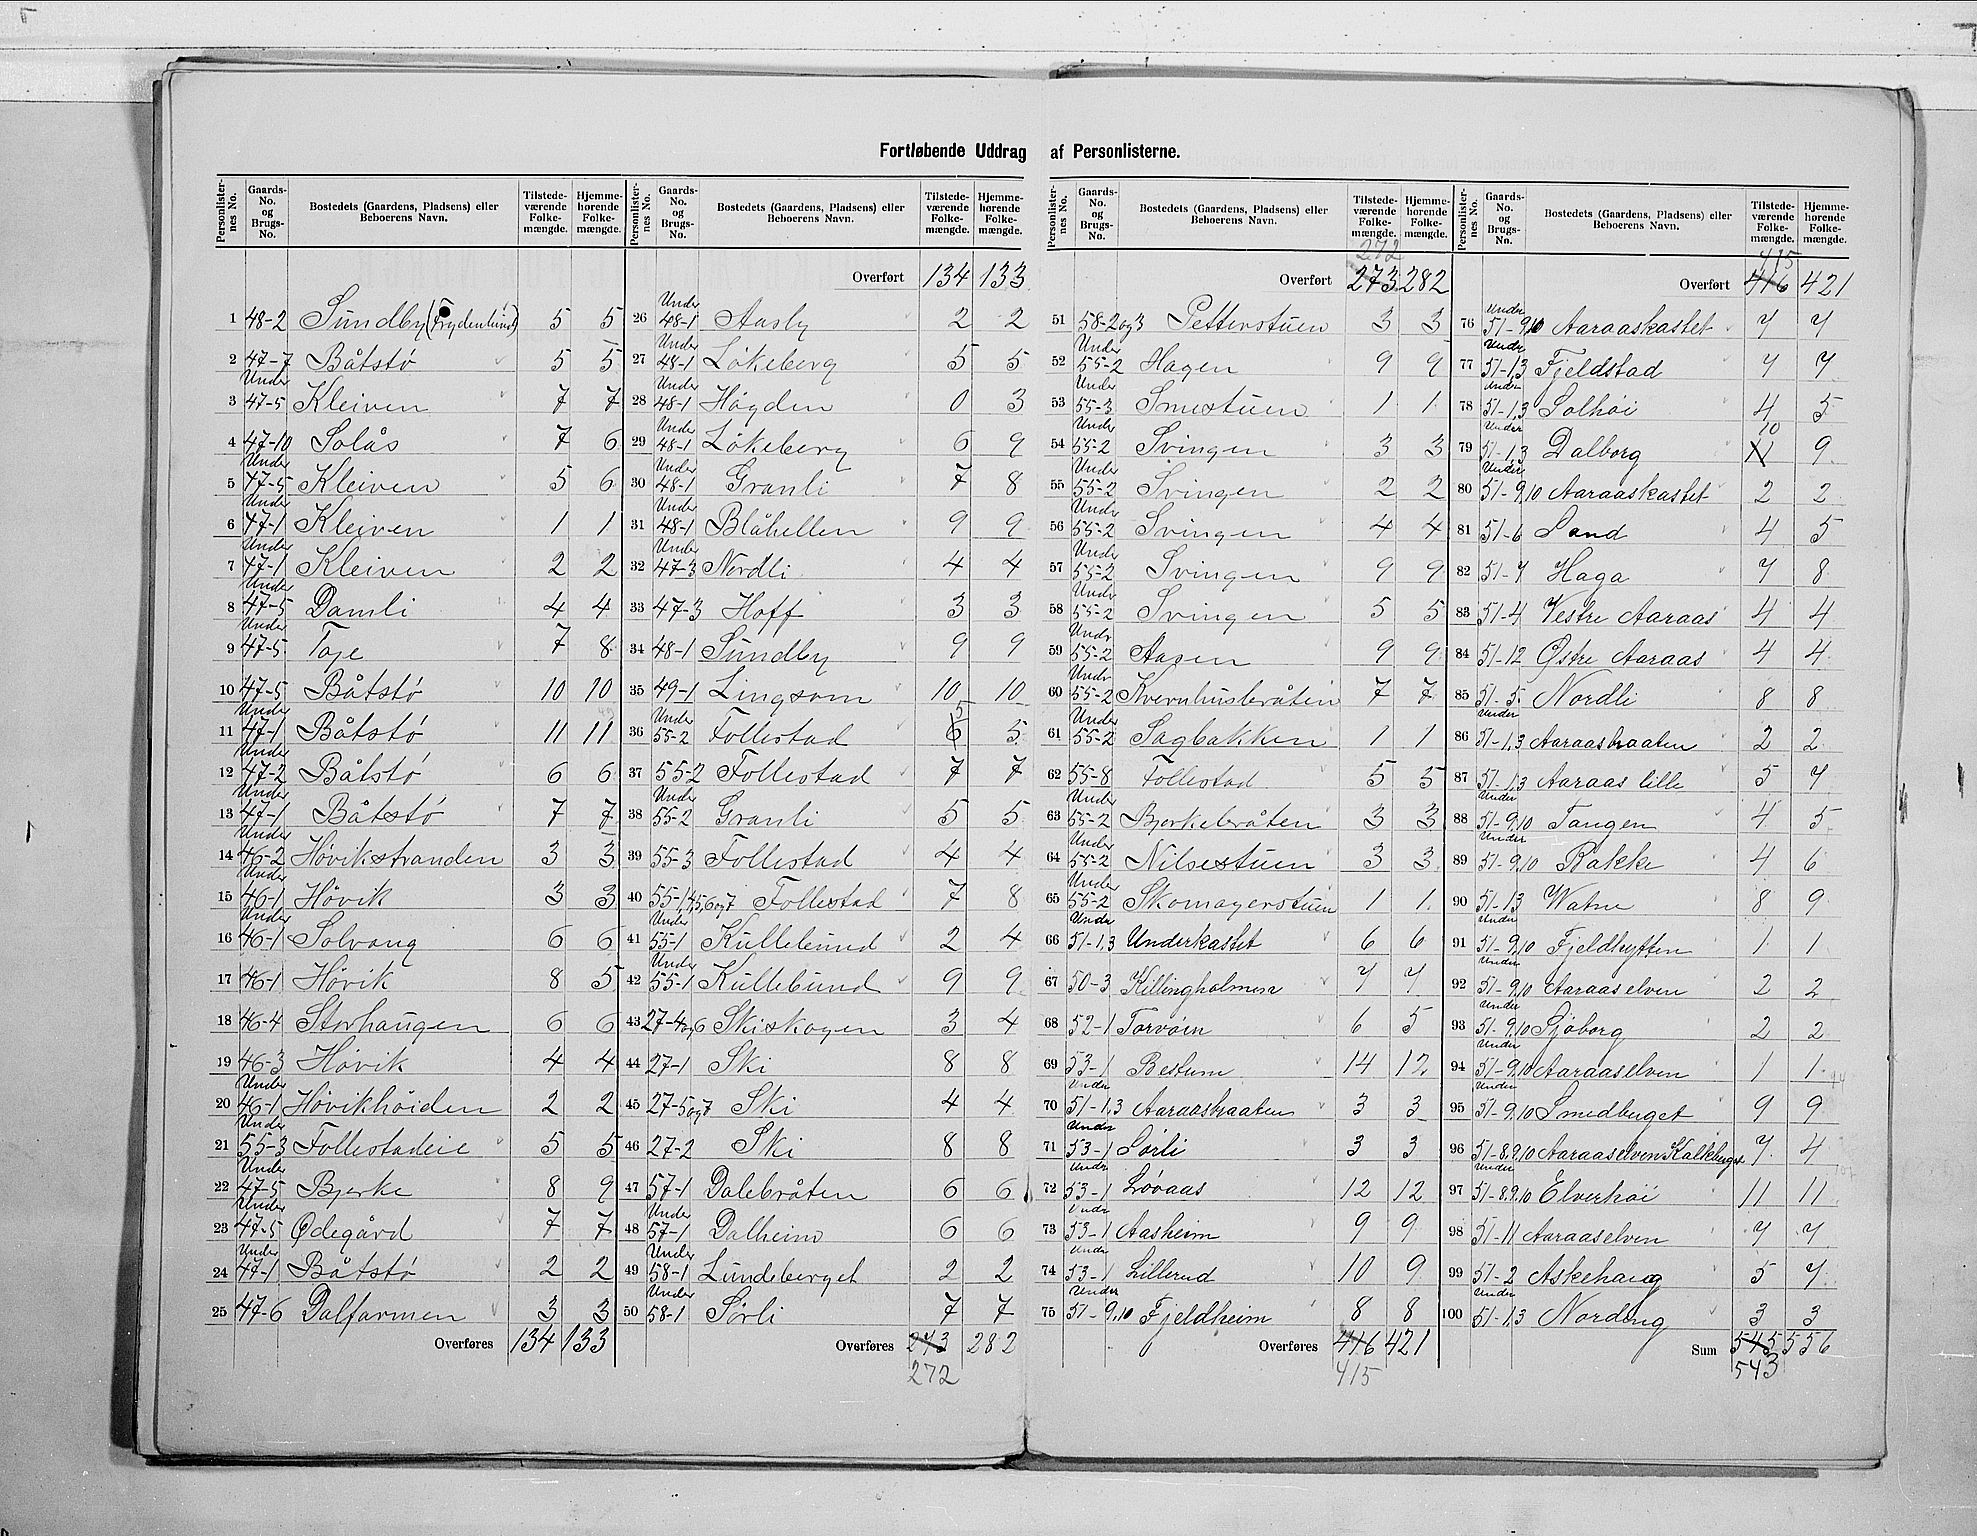 Fortløbende Uddrag af Personlisterne.
Personlisternes No. Gaards-No. og Brugs-No. Bostedets (Gaardens, Pladsens) eller Beboerens Navn. Tilstedeværende Folkemængde. Hjemmehørende Folkemængde.
1 48-2 Sundby (Frydenlund) 5 5
2 47-7 Båtstø 5 5
3 Under 47-5 Kleiven 7 7
4 47-10 Solås 7 6
5 Under 47-5 Kleiven 5 6
6 Under 47-1 Kleiven 1 1
7 Under 47-1 Kleiven 2 2
8 Under 47-5 Damli 4 4
9 Under 47-5 Toje 7 8
10 47-5 Båtstø 10 10
11 Under 47-1 Båtstø 11 11
12 Under 47-2 Båtstø 6 6
13 Under 47-1 Båtstø 7 7
14 Under 46-2 Høvikstranden 3 3
15 Under 46-1 Høvik 3 3
16 Under 46-1 Solvang 6 6
17 46-1 Høvik 8 5
18 46-4 Storhaugen 6 6
19 46-3 Høvik 4 4
20 Under 46-1 Høvikhöiden 2 2
21 Under 55-3 Follestadeie 5 5
22 Under 47-5 Bjerke 8 9
23 Under 47-5 Ødegård 7 7
24 Under 47-1 Båtstø 2 2
25 47-6 Dalfarmen 3 3
Overføres 134 133
Personlisternes No. Gaards-No. og Brugs-No. Bostedets (Gaardens, Pladsens) eller Beboerens Navn. Tilstedeværende Folkemængde. Hjemmehørende Folkemængde.
Overført 134 133
26 Under 48-1 Aasly 2 2
27 Under 48-1 Lökeberg 5 5
28 Under 48-1 Högden 0 3
29 Under 48-1 Lökeberg 6 9
30 Under 48-1 Granli 7 8
31 Under 48-1 Blåhellen 9 9
32 Under 47-3 Nordli 4 4
33 47-3 Hoff 3 3
34 48-1 Sundby 9 9
35 49-1 Lingsom 10 10
36 Under 55-2 Follestad 6 5 5
37 55-2 Follestad 7 7
38 Under 55-2 Granli 5 5
39 55-3 Follestad 4 4
40 55-1,4,5,6og7 Follestad 7 8
41 Under 55-1 Kullebund 2 4
42 Under 55-1 Kullebund 9 9
43 27-4og6 Skiskogen 3 4
44 27-1 Ski 8 8
45 27-5og7 Ski 4 4
46 27-2 Ski 8 8
47 57-1 Dalebråten 6 6
48 Under 57-1 Dalheim 6 6
49 Under 58-1 Lundeberget 2 2
50 Under 58-1 Sørli 7 7
Overføres 273 282
272
Personlisternes No. Gaards-No. og Brugs-No. Bostedets (Gaardens, Pladsens) eller Beboerens Navn. Tilstedeværende Folkemængde. Hjemmehørende Folkemængde.
272
Overført 273 282
51 58-2og3 Petterstuen 3 3
52 Under 55-2 Hagen 9 9
53 Under 55-3 Smestuen 1 1
54 Under 55-2 Svingen 3 3
55 Under 55-2 Svingen 2 2
56 Undr 55-2 Svingen 4 4
57 Undr 55-2 Svingen 9 9
58 Undr 55-2 Svingen 5 5
59 Undr 55-2 Aasen 9 9
60 Undr 55-2 Kvernhusbråten 7 7
61 Under 55-2 Sagbakken 1 1
62 55-8 Follestad 5 5
63 Under 55-2 Bjerkebråten 3 3
64 Under 55-2 Nilsestuen 3 3
65 Under 55-2 Skomagerstuen 1 1
66 Under 51-1,3 Underkastet 6 6
67 50-3 Killingholmen 7 7
68 52-1 Torvöen 6 5
69 53-1 Bestum 14 12
70 Under 51-1,3 Aaraasbraaten 3 3
71 Under 53-1 Sörli 3 3
72 Under 53-1 Lövaas 12 12
73 Undr 53-1 Aasheim 9 9
74 Under 53-1 Lillerud 10 9
75 Under 51-9,10 Fjeldheim 8 8
Overføres 416 421
415
Personlisternes No. Gaards-No. og Brugs-No. Bostedets (Gaardens, Pladsens) eller Beboerens Navn. Tilstedeværende Folkemængde. Hjemmehørende Folkemængde.
415
Overført 416 421
76 Under 51-9,10 Aaraaskastet 7 7
77 Under 51-1,3 Fjeldstad 7 7
78 Under 51-1,3 Solhöi 4 5
79 Under 51-1,3 Dalborg 11 10 9
80 Under 51-9,10 Aaraaskastet 2 2
81 51-6 Lund 4 5
82 51-7 Haga 7 8
83 51-4 Vestre Aaraas 4 4
84 51-12 Østre Aaraas 4 4
85 51-5 Nordli 8 8
86 Under 51-1,3 Aaraasbraaten 2 2
87 51-1,3 Aaraas lille 5 7
88 Under 51-9,10 Tangen 4 5
89 Under 51-9,10 Bakke 4 6
90 51-13 Watne 8 9
91 Under 51-9,10 Fjeldhytten 1 1
92 Under 51-9,10 Aaraaselven 2 2
93 Under 51-9,10 Sjöborg 2 2
94 Under 51-9,10 Aaraaselven 1 1
95 Under 51-9,10 Smedberget 9 9
96 51-8,9,10 Aaraaselven Kalkberget 7 4
97 Under 51-8,9,10 Elverhöi 11 11
98 51-11 Aaraaselven 7 7
99 51-2 Askehaug 5 7
100 Under 51-1,3 Nordeng 3 3
Sum 545 556
543